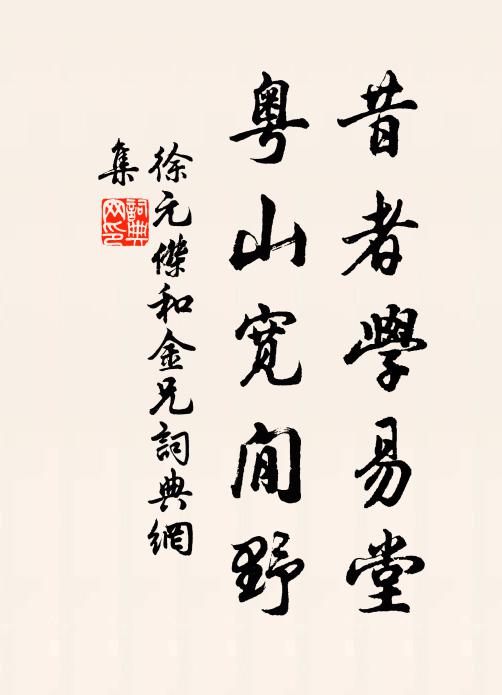 昔者學易堂
粤山寬閒野
徐元傑和金兄詞典網
集
詞典
网印